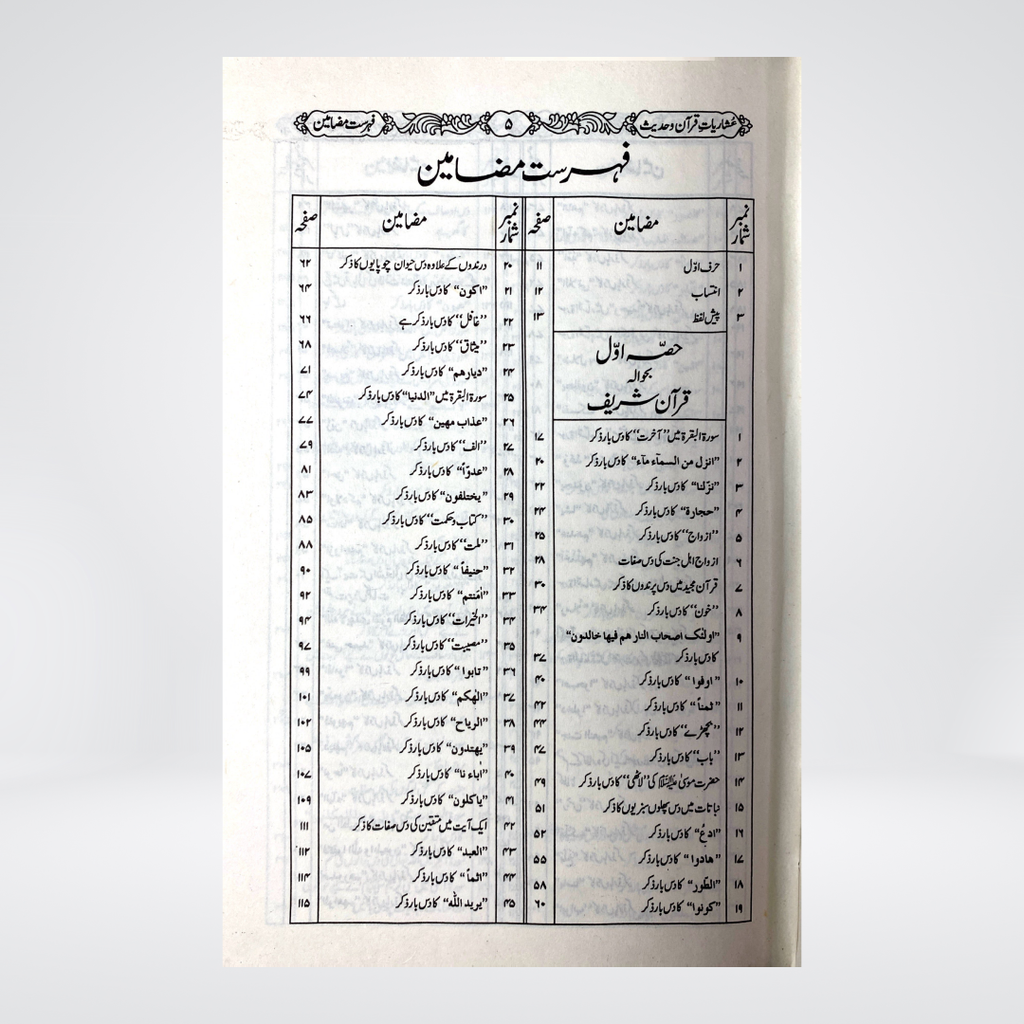 عشاریاتِ قرآن و حدیث ۵ فہرست مضامین
فہرست مضامین
نمبر شمار مضامین صفحہ
۱ حرف اوّل ۱۱
۲ انتساب ۱۲
۳ پیش لفظ ۱۳
حصّہ اوّل
بحوالہ
قرآن شریف
۱ سورۃ البقرۃ میں ”آخرت“ کا دس بار ذکر ۱۷
۲ ”انزل من السمآء مآء“ کا دس بار ذکر ۲۰
۳ ”نزّلنا“ کا دس بار ذکر ۲۲
۴ ”حجارة“ کا دس بار ذکر ۲۴
۵ ”ازواج“ کا دس بار ذکر ۲۵
۶ ازواج اہل جنت کی دس صفات ۲۸
۷ قرآن مجید میں دس پرندوں کا ذکر ۳۰
۸ ”خون“ کا دس بار ذکر ۳۴
۹ ”اولئک اصحاب النار هم فيها خالدون“
کا دس بار ذکر ۳۷
۱۰ ”اوفوا“ کا دس بار ذکر ۴۰
۱۱ ”ثمناً“ کا دس بار ذکر ۴۲
۱۲ ”بچھڑے“ کا دس بار ذکر ۴۴
۱۳ ”باب“ کا دس بار ذکر ۴۷
۱۴ حضرت موسیٰ علیہ السلام کی ”لاٹھی“ کا دس بار ذکر ۴۹
۱۵ نباتات میں دس پھلوں سبزیوں کا ذکر ۵۱
۱۶ ”ادعُ“ کا دس بار ذکر ۵۲
۱۷ ”هادوا“ کا دس بار ذکر ۵۵
۱۸ ”الطّور“ کا دس بار ذکر ۵۸
۱۹ ”کونوا“ کا دس بار ذکر ۶۰
نمبر شمار مضامین صفحہ
۲۰ درندوں کے علاوہ دس حیوان چوپایوں کا ذکر ۶۲
۲۱ ”اکون“ کا دس بار ذکر ۶۴
۲۲ ”غافل“ کا دس بار ذکر ہے ۶۶
۲۳ ”میثاق“ کا دس بار ذکر ۶۸
۲۴ ”دیارهم“ کا دس بار ذکر ۷۱
۲۵ سورۃ البقرۃ میں ”الدنیا“ کا دس بار ذکر ۷۴
۲۶ ”عذاب مهين“ کا دس بار ذکر ۷۷
۲۷ ”الف“ کا دس بار ذکر ۷۹
۲۸ ”عدوّاً“ کا دس بار ذکر ۸۱
۲۹ ”يختلفون“ کا دس بار ذکر ۸۳
۳۰ ”کتاب و حکمت“ کا دس بار ذکر ۸۵
۳۱ ”ملت“ کا دس بار ذکر ۸۸
۳۲ ”حنيفاً“ کا دس بار ذکر ۹۰
۳۳ ”اٰمنتم“ کا دس بار ذکر ۹۲
۳۴ ”الخیرات“ کا دس بار ذکر ۹۴
۳۵ ”مصیبت“ کا دس بار ذکر ۹۷
۳۶ ”تابوا“ کا دس بار ذکر ۹۹
۳۷ ”الٰهکم“ کا دس بار ذکر ۱۰۱
۳۸ ”الرياح“ کا دس بار ذکر ۱۰۲
۳۹ ”يهتدون“ کا دس بار ذکر ۱۰۵
۴۰ ”اٰباء نا“ کا دس بار ذکر ۱۰۷
۴۱ ”ياکلون“ کا دس بار ذکر ۱۰۹
۴۲ ایک آیت میں متقین کی دس صفات کا ذکر ۱۱۱
۴۳ ”العبد“ کا دس بار ذکر ۱۱۲
۴۴ ”اثماً“ کا دس بار ذکر ۱۱۴
۴۵ ”يريد الله“ کا دس بار ذکر ۱۱۵